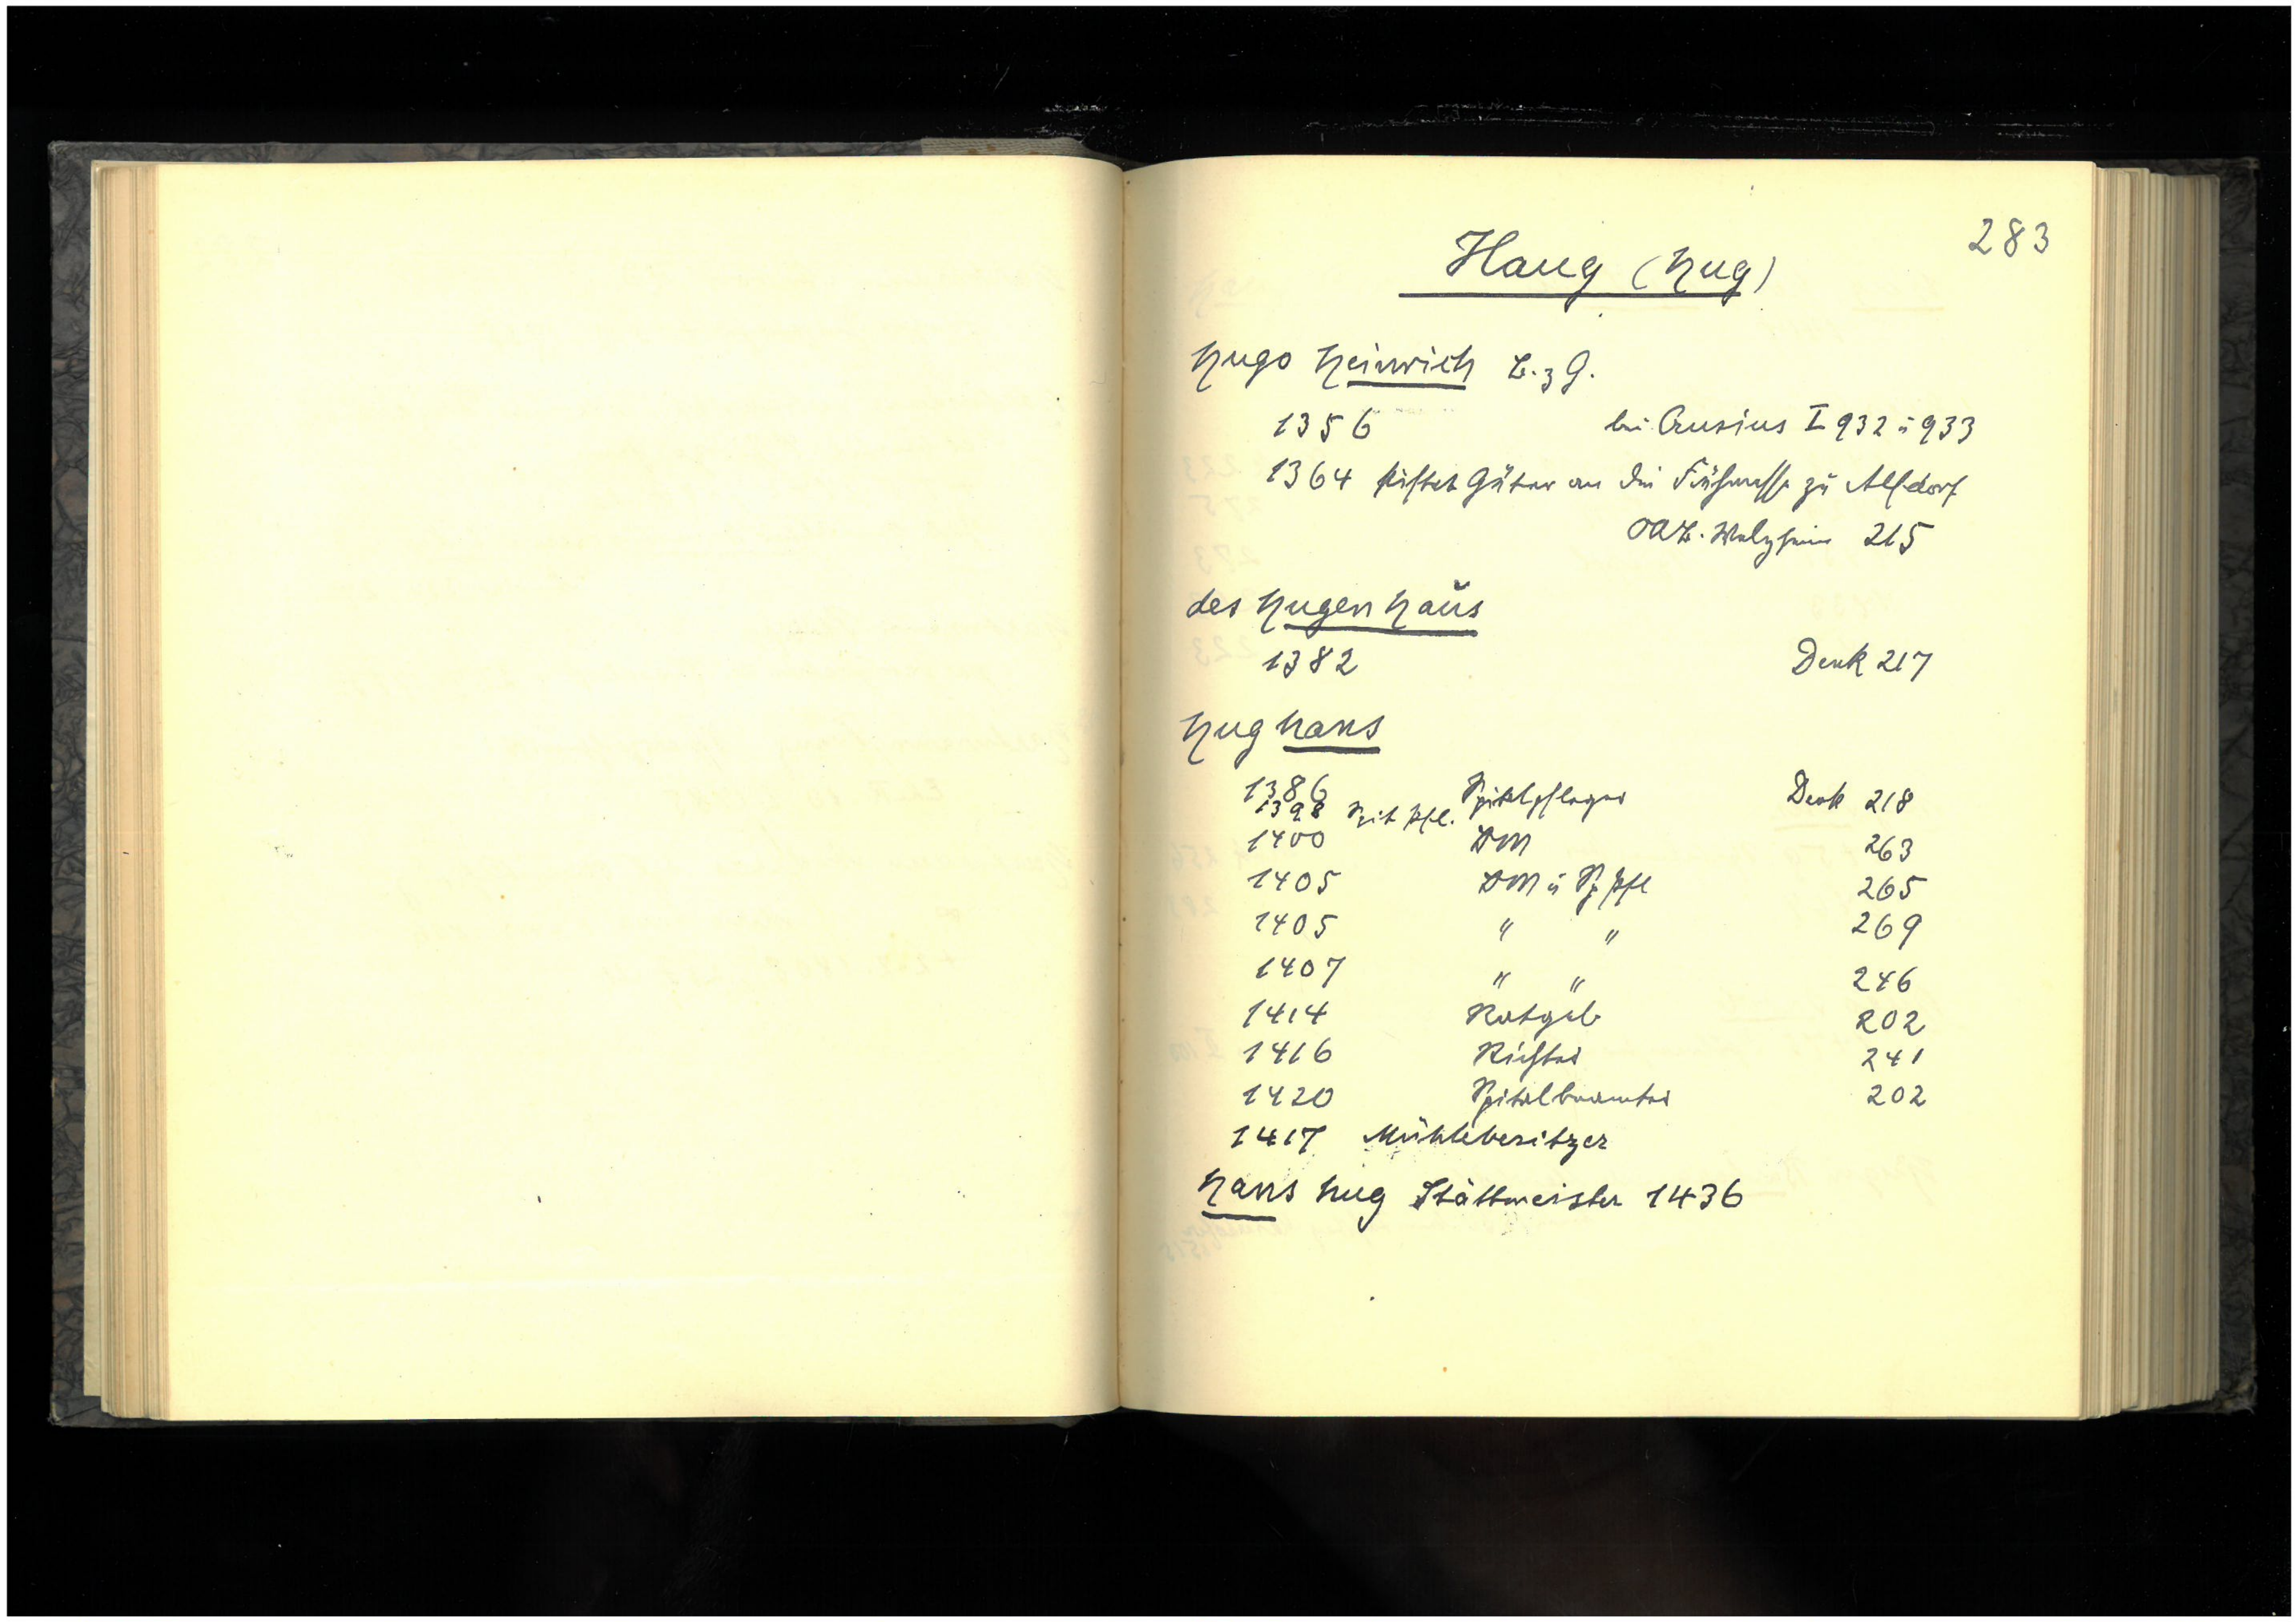 283
Haug (Hug)
Hugo Heinrich B. z G.
1356 bei Crusius I 932 u 933
1364 stiftet Güter an die Frühmesse zu Alfdorf
OAB. Welzheim 215
des Hugen Haus
1382 Denk 217
Hug Hans
1386 Spitalpfleger Denk 218
1398 Spit Pfl.
1400 BM 263
1405 BM u Sp Pfl 265
1405 " " 269
1407 " " 246
1414 Ratgeb 202
1416 Richter 241
1420 Spitalbeamter 202
1417 Mühlebesitzer
Hans Hug Stättmeister 1436